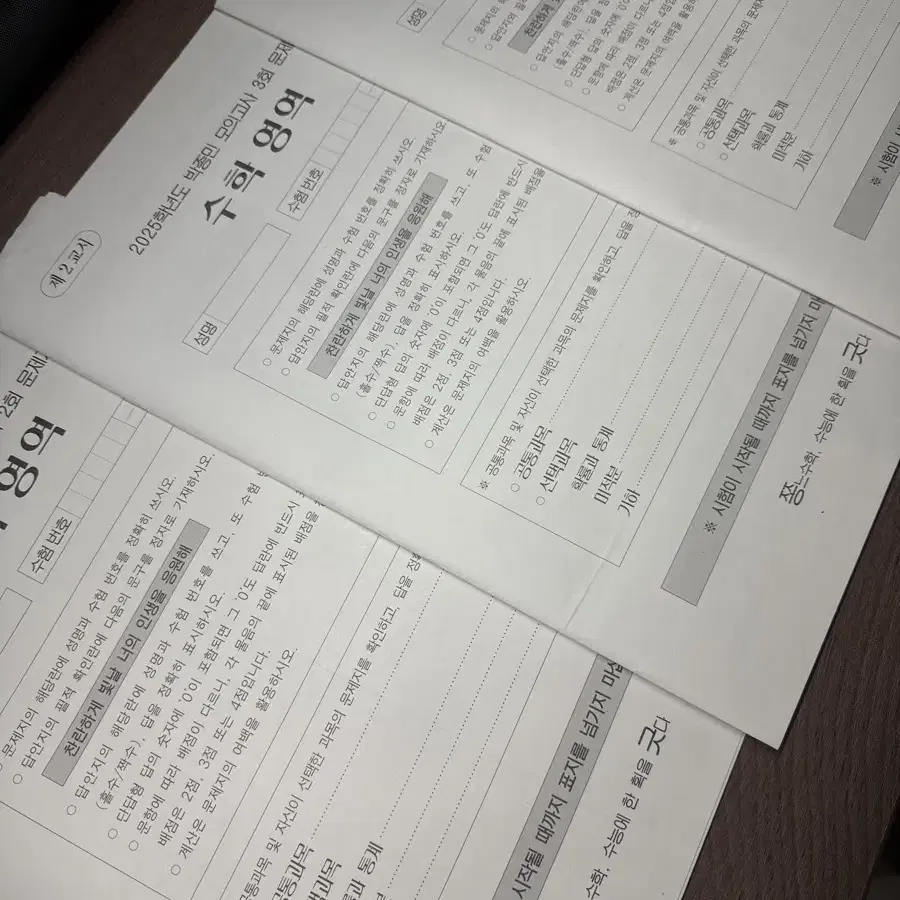 성명
○ 문제지의 해당란에
○ 답안지의 필적
찬란하게
○ 답안지의 해당란에
(홀수/짝수), 답을 정확
○ 단답형 답의 숫자에 '0'이
○ 문항에 따라 배점이 다르니
배점은 2점, 3점 또는 4점입
○ 계산은 문제지의 여백을 활용
※ 공통과목 및 자신이 선택한 과목의 문제
○ 공통과목
○ 선택과목
확률과 통계
미적분
기하
※ 시험이 시
제 2 교시
2025학년도 박종민 모의고사 3회 문제
수학 영역
성명
수험 번호
○ 문제지의 해당란에 성명과 수험 번호를 정확히 쓰시오.
○ 답안지의 필적 확인란에 다음의 문구를 정자로 기재하시오.
찬란하게 빛날 너의 인생을 응원해
○ 답안지의 해당란에 성명과 수험 번호를 쓰고, 또 수험
(홀수/짝수), 답을 정확히 표시하시오.
○ 단답형 답의 숫자에 '0'이 포함되면 그 '0'도 답란에 반드시
○ 문항에 따라 배점이 다르니, 각 물음의 끝에 표시된 배점을
배점은 2점, 3점 또는 4점입니다.
○ 계산은 문제지의 여백을 활용하시오.
※ 공통과목 및 자신이 선택한 과목의 문제지를 확인하고, 답을 정
○ 공통과목
○ 선택과목
확률과 통계
미적분
기하
※ 시험이 시작될 때까지 표지를 넘기지 마
쫑느수학, 수능에 한 획을 긋다
2회 문제
영역
수험 번호
문제지의 해당란에 성명과 수험 번호를 정확히 쓰시오.
○ 답안지의 필적 확인란에 다음의 문구를 정자로 기재하시오.
찬란하게 빛날 너의 인생을 응원해
○ 답안지의 해당란에 성명과 수험 번호를 쓰고, 또 수험
(홀수/짝수), 답을 정확히 표시하시오.
○ 단답형 답의 숫자에 '0'이 포함되면 그 '0'도 답란에 반드시
○ 문항에 따라 배점이 다르니, 각 물음의 끝에 표시된 배점을
배점은 2점, 3점 또는 4점입니다.
○ 계산은 문제지의 여백을 활용하시오.
공통과목 및 자신이 선택한 과목의 문제지를 확인하고, 답을 정
공통과목
택과목
률과 통계
시작될 때까지 표지를 넘기지 마십
수학, 수능에 한 획을 긋다